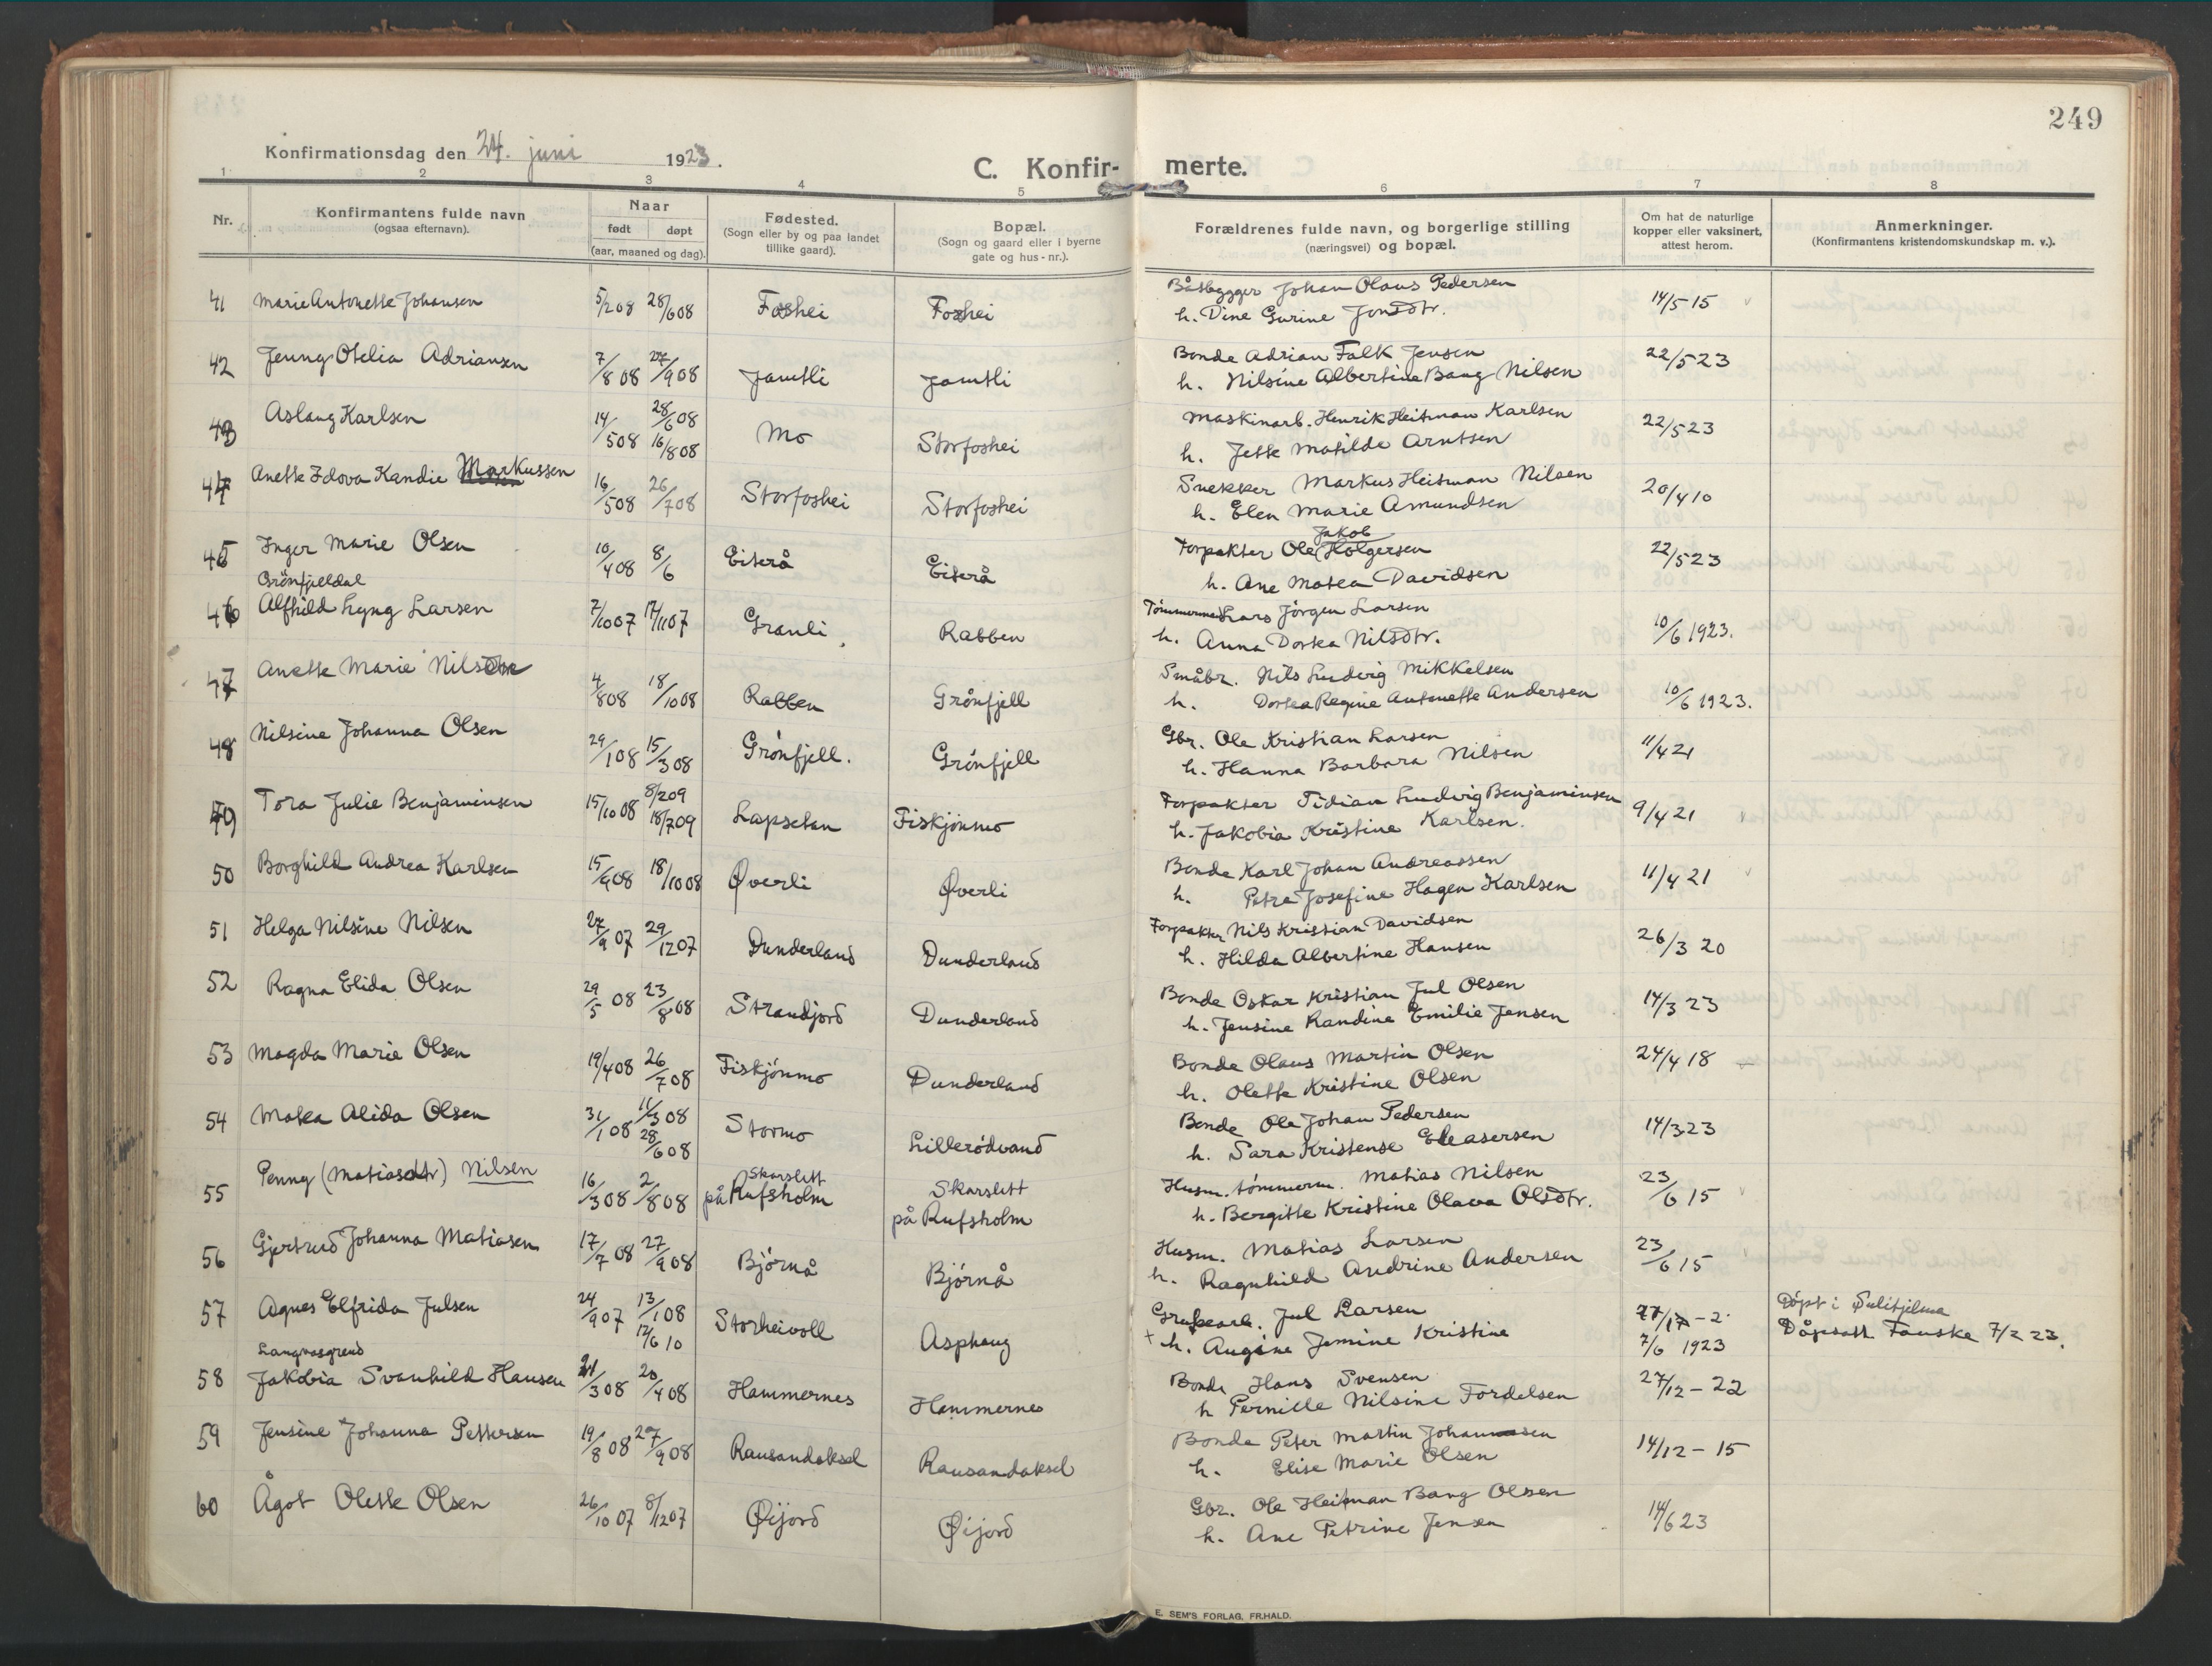 249
Konfirmationsdag den 24. juni 1923.
C. Konfir- merte.
1 2 3 4 5 6 7 8
Nr.
Konfirmantens fulde navn
(ogsaa efternavn).
Naar
født døpt
(aar, maaned og dag).
Fødested.
(Sogn eller by og paa landet
tillike gaard).
Bopæl.
(Sogn og gaard eller i byerne
gate og hus-nr.).
Forældrenes fulde navn, og borgerlige stilling
(næringsvei) og bopæl.
Om hat de naturlige
kopper eller vaksinert,
attest herom.
Anmerkninger.
(Konfirmantens kristendomskundskap m. v.).
41 Marie Antonette Johansen 5/2 08 28/6 08 Foshei Foshei Båtbygger Johan Olaus Pedersen 14/5 15
h. Dine Gurine Jonsdtr.
42 Jenny Otelia Adriansen 7/8 08 27/9 08 Jamtli Jamtli Bonde Adrian Falk Jensen 22/5 23
h. Nilsine Albertine Bang Nilsen
43 Aslaug Karlsen 14/5 08 28/6 08 16/8 08 Mo Storfoshei Maskinarb. Henrik Heitman Karlsen 22/5 23
h. Jette Matilde Arntsen
44 Anette Idova Kandie Markussen 16/5 08 26/7 08 Storfoshei Storfoshei Snekker Markus Heitman Nilsen 20/4 10
h. Elen Marie Amundsen
45 Inger Marie Olsen 10/4 08 8/6 Eiterå Eiterå Forpakter Ole Jakob Holgersen 22/5 23
h. Ane Matea Davidsen
Grönfjeldal
46 Alfhild Lyng Larsen 2/10 07 17/11 07 Granli Rabben Tömmermand Lars Jörgen Larsen 10/6 1923.
h. Anna Dortea Nilsdtr.
47 Anette Marie Nilsdtr 4/8 08 18/10 08 Rabben Grönfjell Småbr. Nils Ludvig Mikkelsen 10/6 1923.
h. Dortea Regine Antonette Andersen
48 Nilsine Johanna Olsen 29/1 08 15/3 08 Grönfjell. Grönfjell Gbr. Ole Kristian Larsen 11/4 21
h. Hanna Barbara Nilsen
49 Tora Julie Benjaminsen 15/10 08 8/2 09 18/7 09 Lapsetan Fiskjönmo Forpakter Tidian Ludvig Benjaminsen 9/4 21
h. Jakobia Kristine Karlsen.
50 Borghild Andrea Karlsen 15/9 08 18/10 08 Øverli Øverli Bonde Karl Johan Andreassen 11/4 21
h. Petra Josefine Hagen Karlsen
51 Helga Nilsine Nilsen 27/9 07 29/12 07 Dunderland Dunderland Forpakter Nils Kristian Davidsen 26/3 20
h. Hilda Albertine Hansen
52 Ragna Elida Olsen 29/5 08 23/8 08 Strandjord Dunderland Bonde Oskar Kristian Jul Olsen 14/3 23
h. Jensine Randine Emilie Jensen
53 Magda Marie Olsen 19/4 08 26/7 08 Fiskjönmo Dunderland Bonde Olaus Martin Olsen 24/4 18
h. Olette Kristine Olsen
54 Matea Alida Olsen 31/1 08 11/3 08 28/6 08 Stormo Lillerödvand Bonde Ole Johan Pedersen 14/3 23
h. Sara Kristense Eleasersen
55 Penny (Matiasdtr) Nilsen 16/3 08 2/8 08 Skarslett på Rufsholm Skarslett på Rufsholm Husm. tömmerm. Matias Nilsen 23/6 15
h. Bergitte Kristine Olava Olsdtr.
56 Gjertrud Johanna Matiasen 17/7 08 27/9 08 Björnå Björnå Husm. Matias Larsen 23/6 15
h. Ragnhild Andrine Andersen
57 Agnes Elfrida Julsen 24/9 07 13/1 08 12/6 10 Storheivoll Asphaug Grubearb. Jul Larsen 27/12 - 2. Döpt i Sulitjelma
+ h. Augine Jemine Kristine 7/6 1923 Dåpsatt. Fauske 7/2 23.
Langvasgrend
58 Jakobia Svanhild Hansen 21/3 08 20/4 08 Hammernes Hammernes Bonde Hans Svensen 27/12 - 22
h Pernille Nilsine Fordelsen
59 Jensine Johanna Pettersen 19/8 08 27/9 08 Rausandaksel Rausandaksel Bonde Peter Martin Johannessen 14/12 - 15
h. Elise Marie Olsen
60 Ågot Olette Olsen 26/10 07 8/12 07 Øijord Øijord Gbr. Ole Heitman Bang Olsen 14/6 23
h. Ane Petrine Jensen
E. SEM'S FORLAG, FR.HALD.